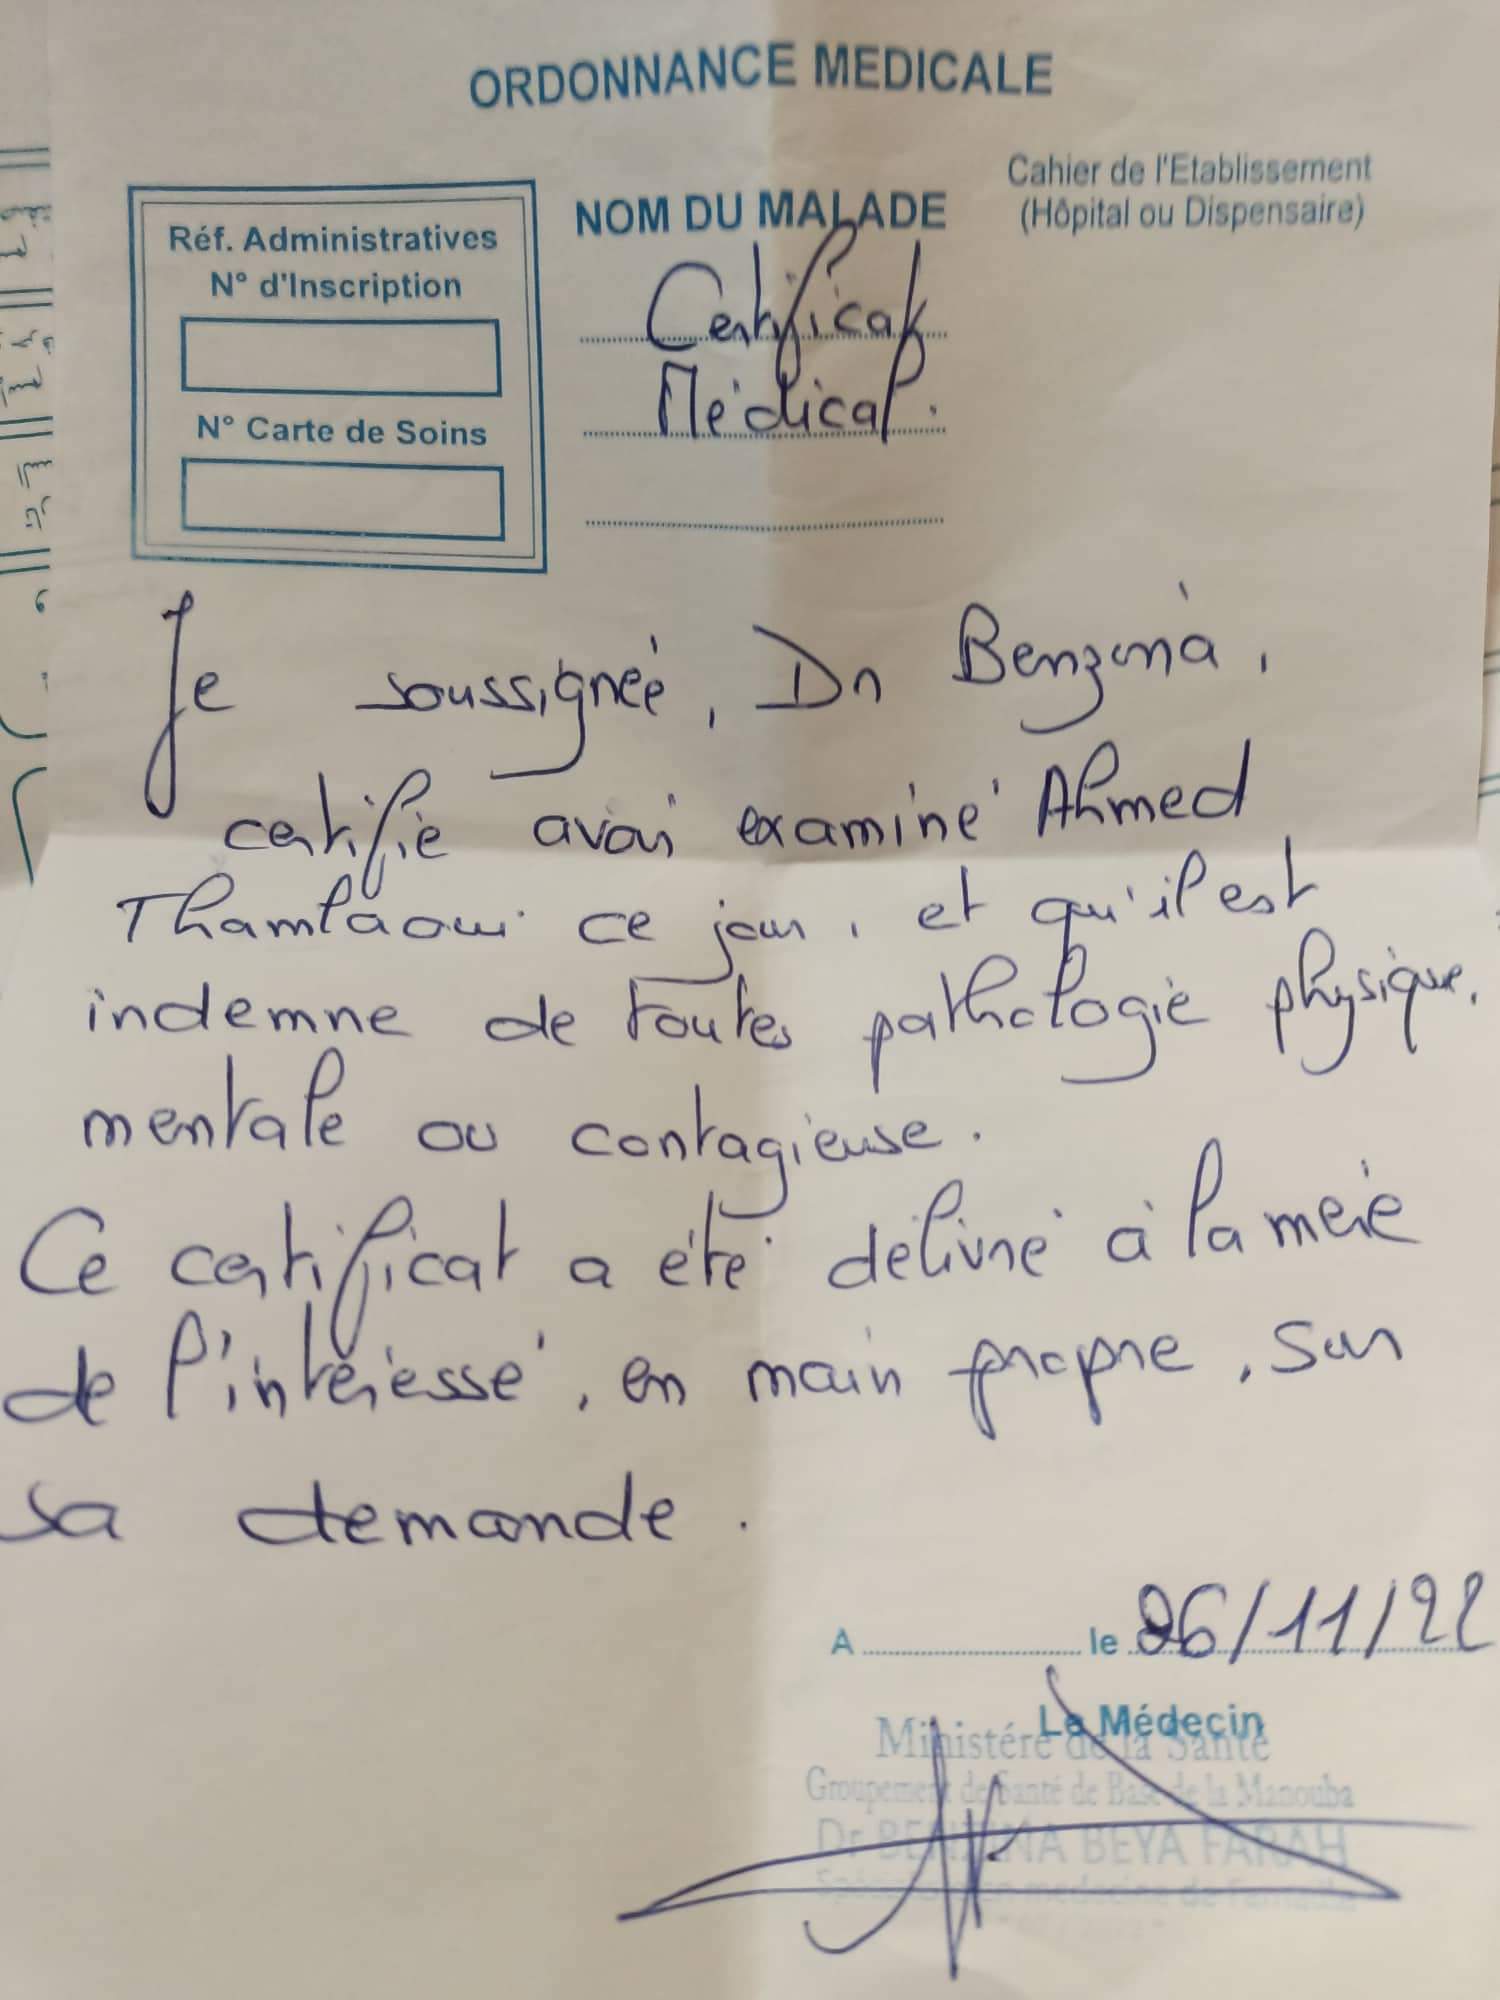 ORDONNANCE MEDICALE
Réf. Administratives
N° d'Inscription
N° Carte de Soins
NOM DU MALADE
Certificat
Médical.
Cahier de l'Etablissement
(Hôpital ou Dispensaire)
Je soussignée, Dr Benzina,
certifie avoir examiné Ahmed
Thamlaoui ce jour, et qu'il est
indemne de toutes pathologie physique,
mentale ou contagieuse.
Ce certificat a été délivré à la mère
de l'intéressé, en main propre, sur
sa demande.
A le 26/11/22
Le Médecin
Ministére de la Santé
Groupement de Santé de Base de la Manouba
Dr BENZINA BEYA FARAH